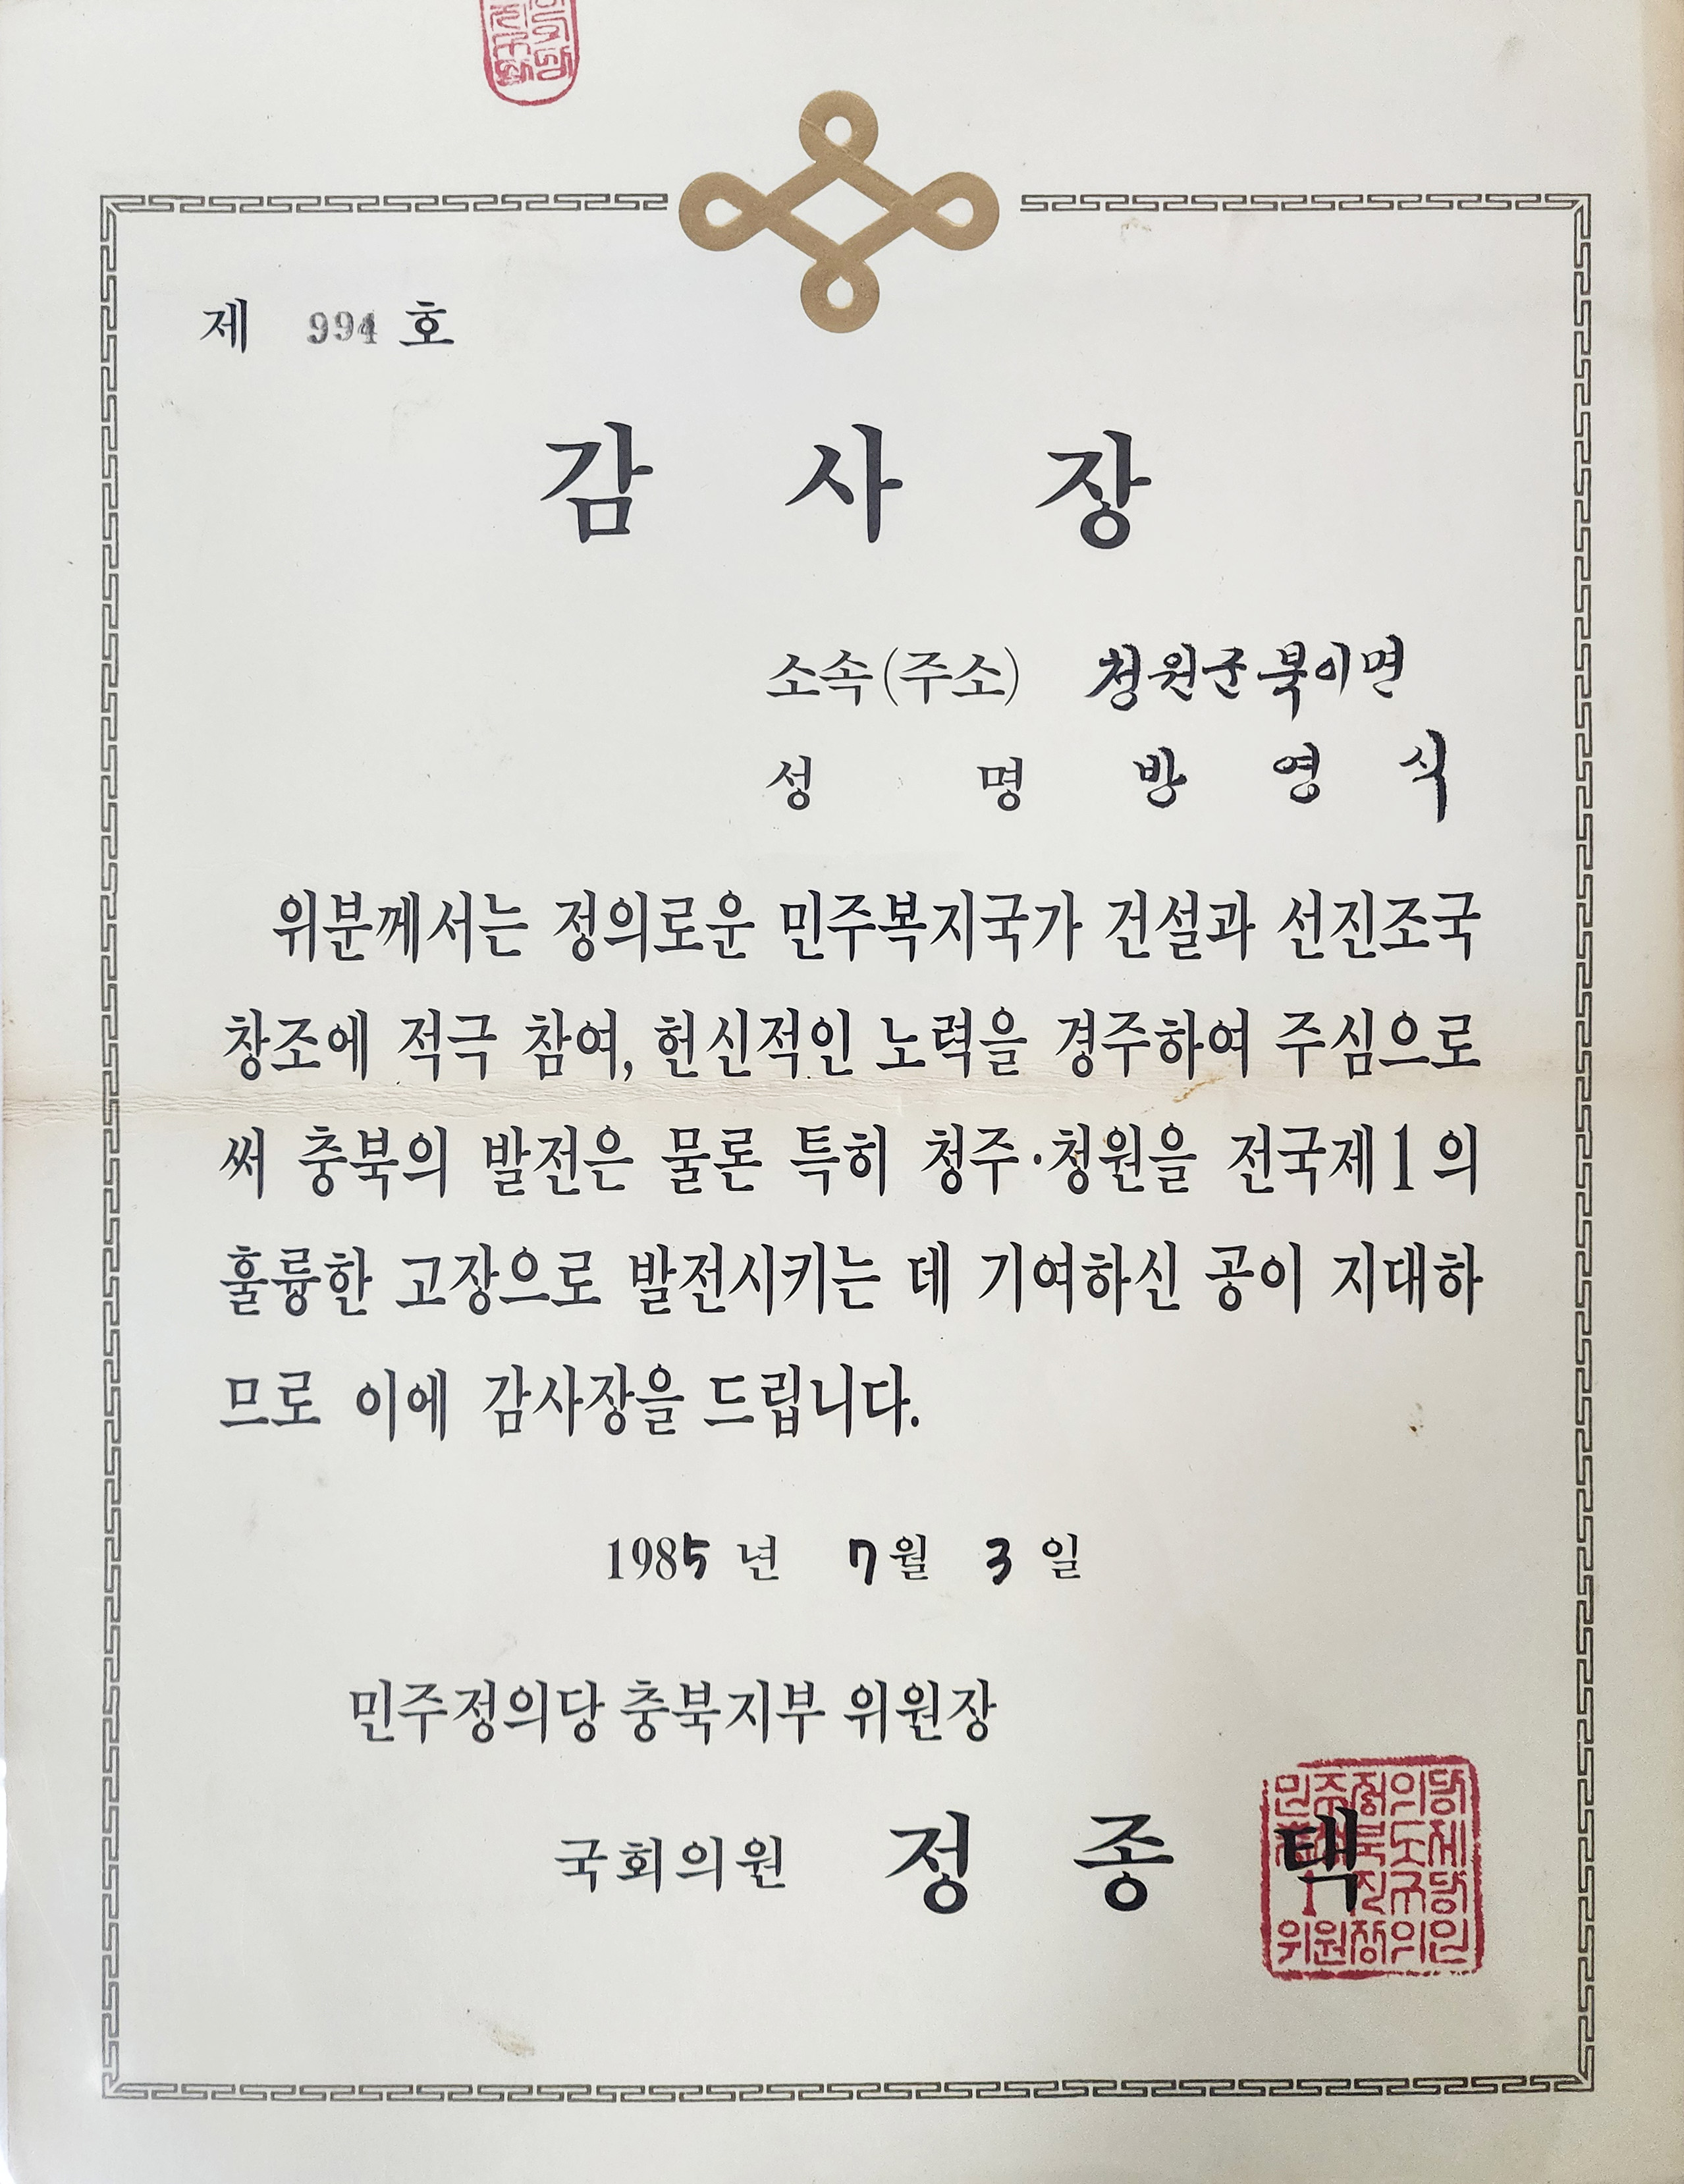 제 994 호
감 사 장
소속(주소) 청원군북이면
성 명 방 영 식
위분께서는 정의로운 민주복지국가 건설과 선진조국
창조에 적극 참여, 헌신적인 노력을 경주하여 주심으로
써 충북의 발전은 물론 특히 청주·청원을 전국제1의
훌륭한 고장으로 발전시키는 데 기여하신 공이 지대하
므로 이에 감사장을 드립니다.
1985 년 7 월 3 일
민주정의당 충북지부 위원장
국회의원 정 종 택
민주정의당
북도제
지구당
위원장의인